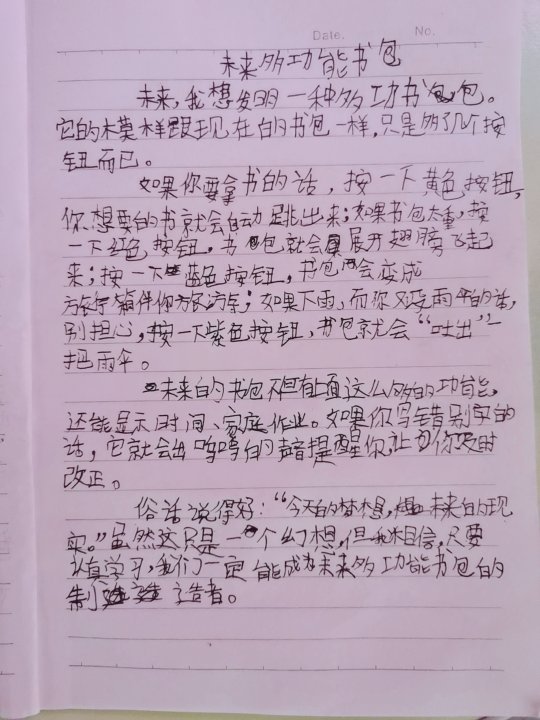 Date. No.
未来多功能书包
未来,我想发明一种多功书包。
它的木莫样跟现在的书包一样,只是多了几个按
钮而已。
如果你要拿书的话,按一下黄色按钮,
你想要的书就会自动跳出来;如果书包太重,按
一下红色按钮,书包就会展开翅膀飞起
来;按一下蓝色按钮,书包会变成
伴你方;如果下雨,而你又没雨伞的话,
别担心,按一下紫色按钮,书包就会“吐出”一
把雨伞。
未来的书包不但有上面这么多的功能,
还能显示时间、家庭作业。如果你写错别字的
话,它就会出呜呜的声音提醒你,让你及时
改正。
俗话说得好:“今天的梦想,未来的现
实。”虽然这只是一个幻想,但我相信,只要
认真学习,我们一定能成为未来多功能书包的
制造者。